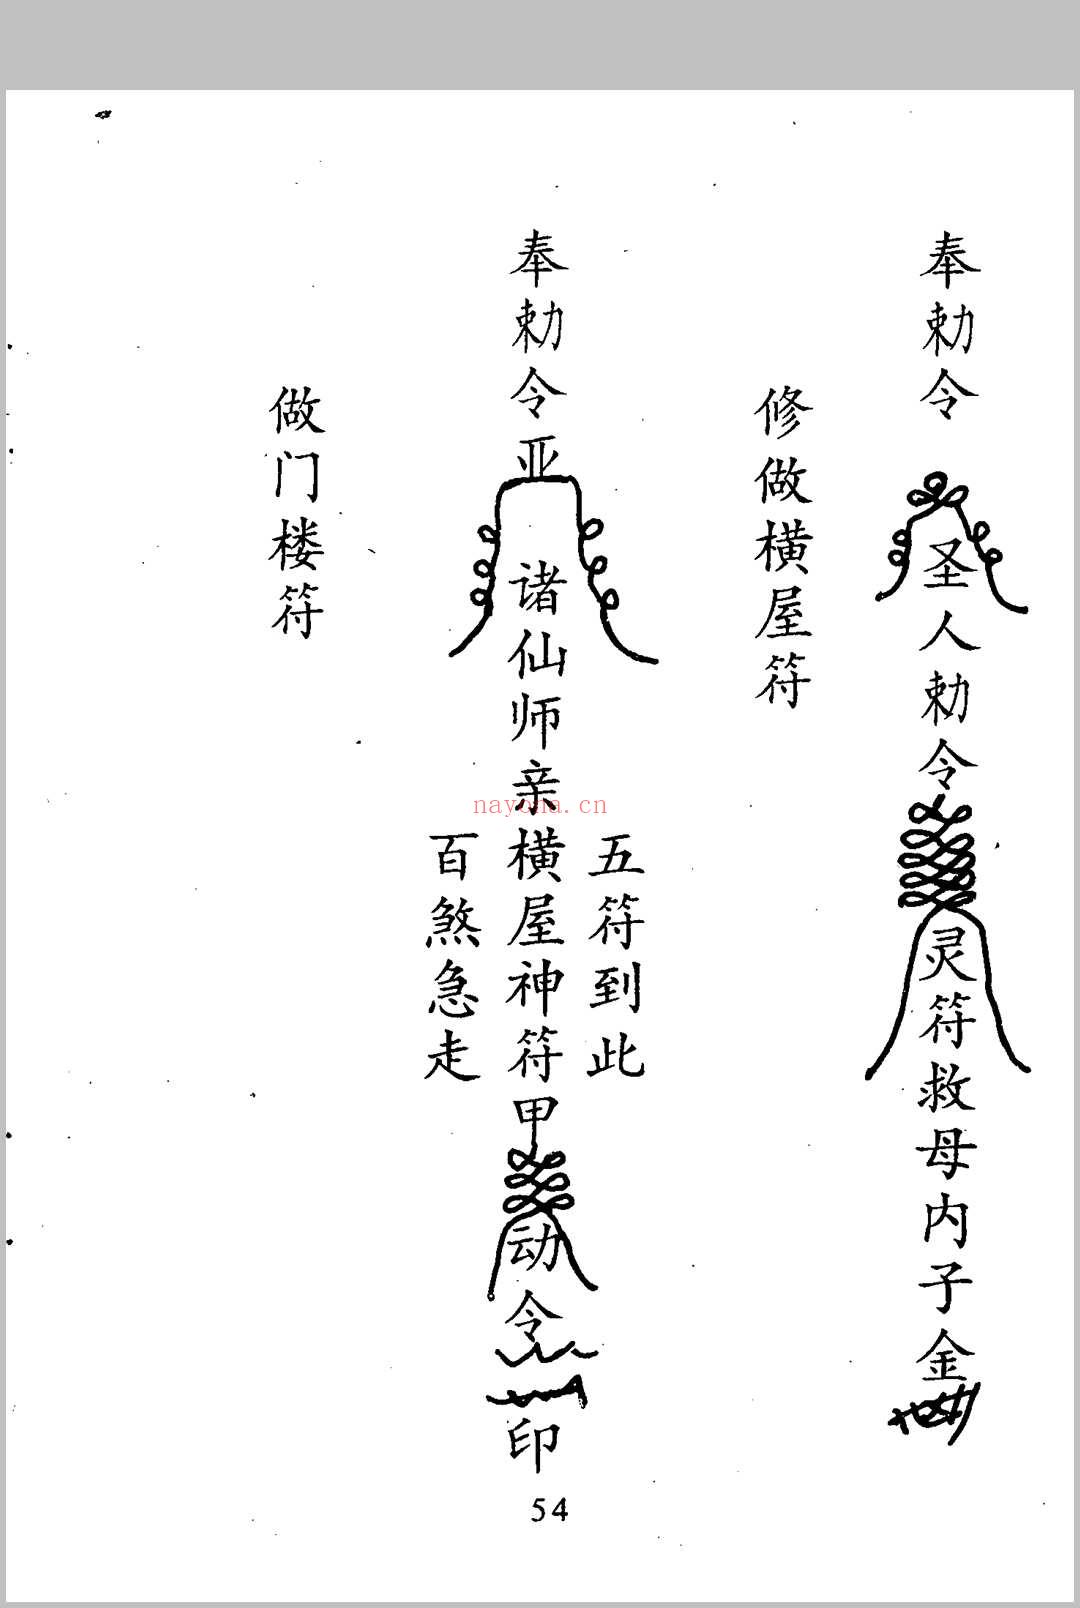 奉勅令
圣人勅令
灵符救母内子金
修做横屋符
奉勅令亚
诸仙师亲横屋神符甲
动令
印
五符到此
百煞急走
做门楼符
nayona.cn
54